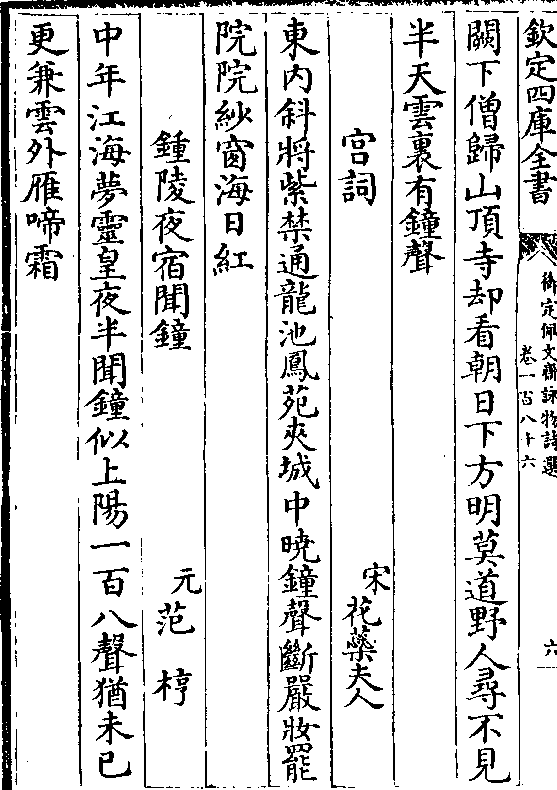 欽定四庫全書
御定佩文齋詠物詩選
卷一百八十六
六
闕下僧歸山頂寺却看朝日下方明莫道野人尋不見
半天雲裏有鐘聲
宫詞
宋花蘂夫人
東内斜將紫禁通龍池鳳苑夾城中曉鐘聲斷嚴妝罷
院院紗窗海日紅
鍾陵夜宿聞鐘
元范梈
中年江海夢靈皇夜半聞鐘似上陽一百八聲猶未已
更兼雲外雁啼霜